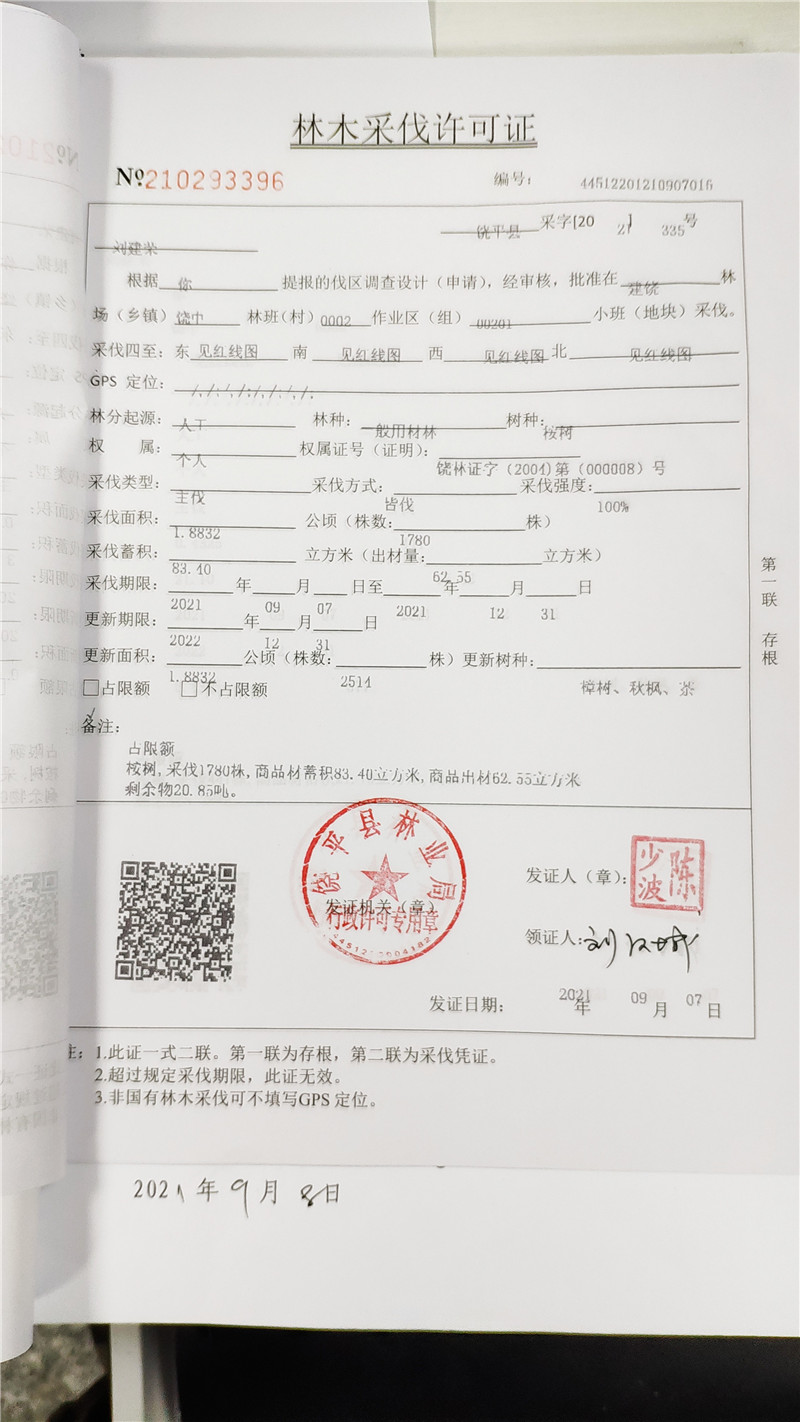 林木采伐许可证
№210293396 编号: 44512201210907016
饶平县 采字[20 21] 335号
刘建荣
根据 你 提报的伐区调查设计（申请），经审核，批准在 建饶 林
场（乡镇）饶中 林班(村) 0002 作业区（组） 00201 小班（地块）采伐。
采伐四至：东 见红线图 南 见红线图 西 见红线图 北 见红线图
GPS 定位： /./././././././.
林分起源： 人工 林种： 一般用材林 树种： 桉树
权 属： 个人 权属证号（证明）： 饶林证字（2004)第（000008）号
采伐类型： 主伐 采伐方式： 皆伐 采伐强度： 100%
采伐面积： 1.8832 公顷（株数： 1780 株）
采伐蓄积： 83.40 立方米（出材量： 62.55 立方米）
采伐期限： 2021 年 09 月 07 日至 2021 年 12 月 31 日
更新期限： 2022 年 12 月 31 日
更新面积： 1.8832 公顷（株数： 2514 株）更新树种： 樟树、秋枫、茶
□占限额 □不占限额
√
备注：
占限额
桉树,采伐1780株,商品材蓄积83.40立方米,商品出材62.55立方米
剩余物20.85吨。
第一联 存根
饶平县林业局
发证机关（章）
行政许可专用章
发证人（章）： 陈少波
领证人：
发证日期： 2021 年 09 月 07 日
注：1.此证一式二联。第一联为存根，第二联为采伐凭证。
2.超过规定采伐期限，此证无效。
3.非国有林木采伐可不填写GPS 定位。
2021年9月8日